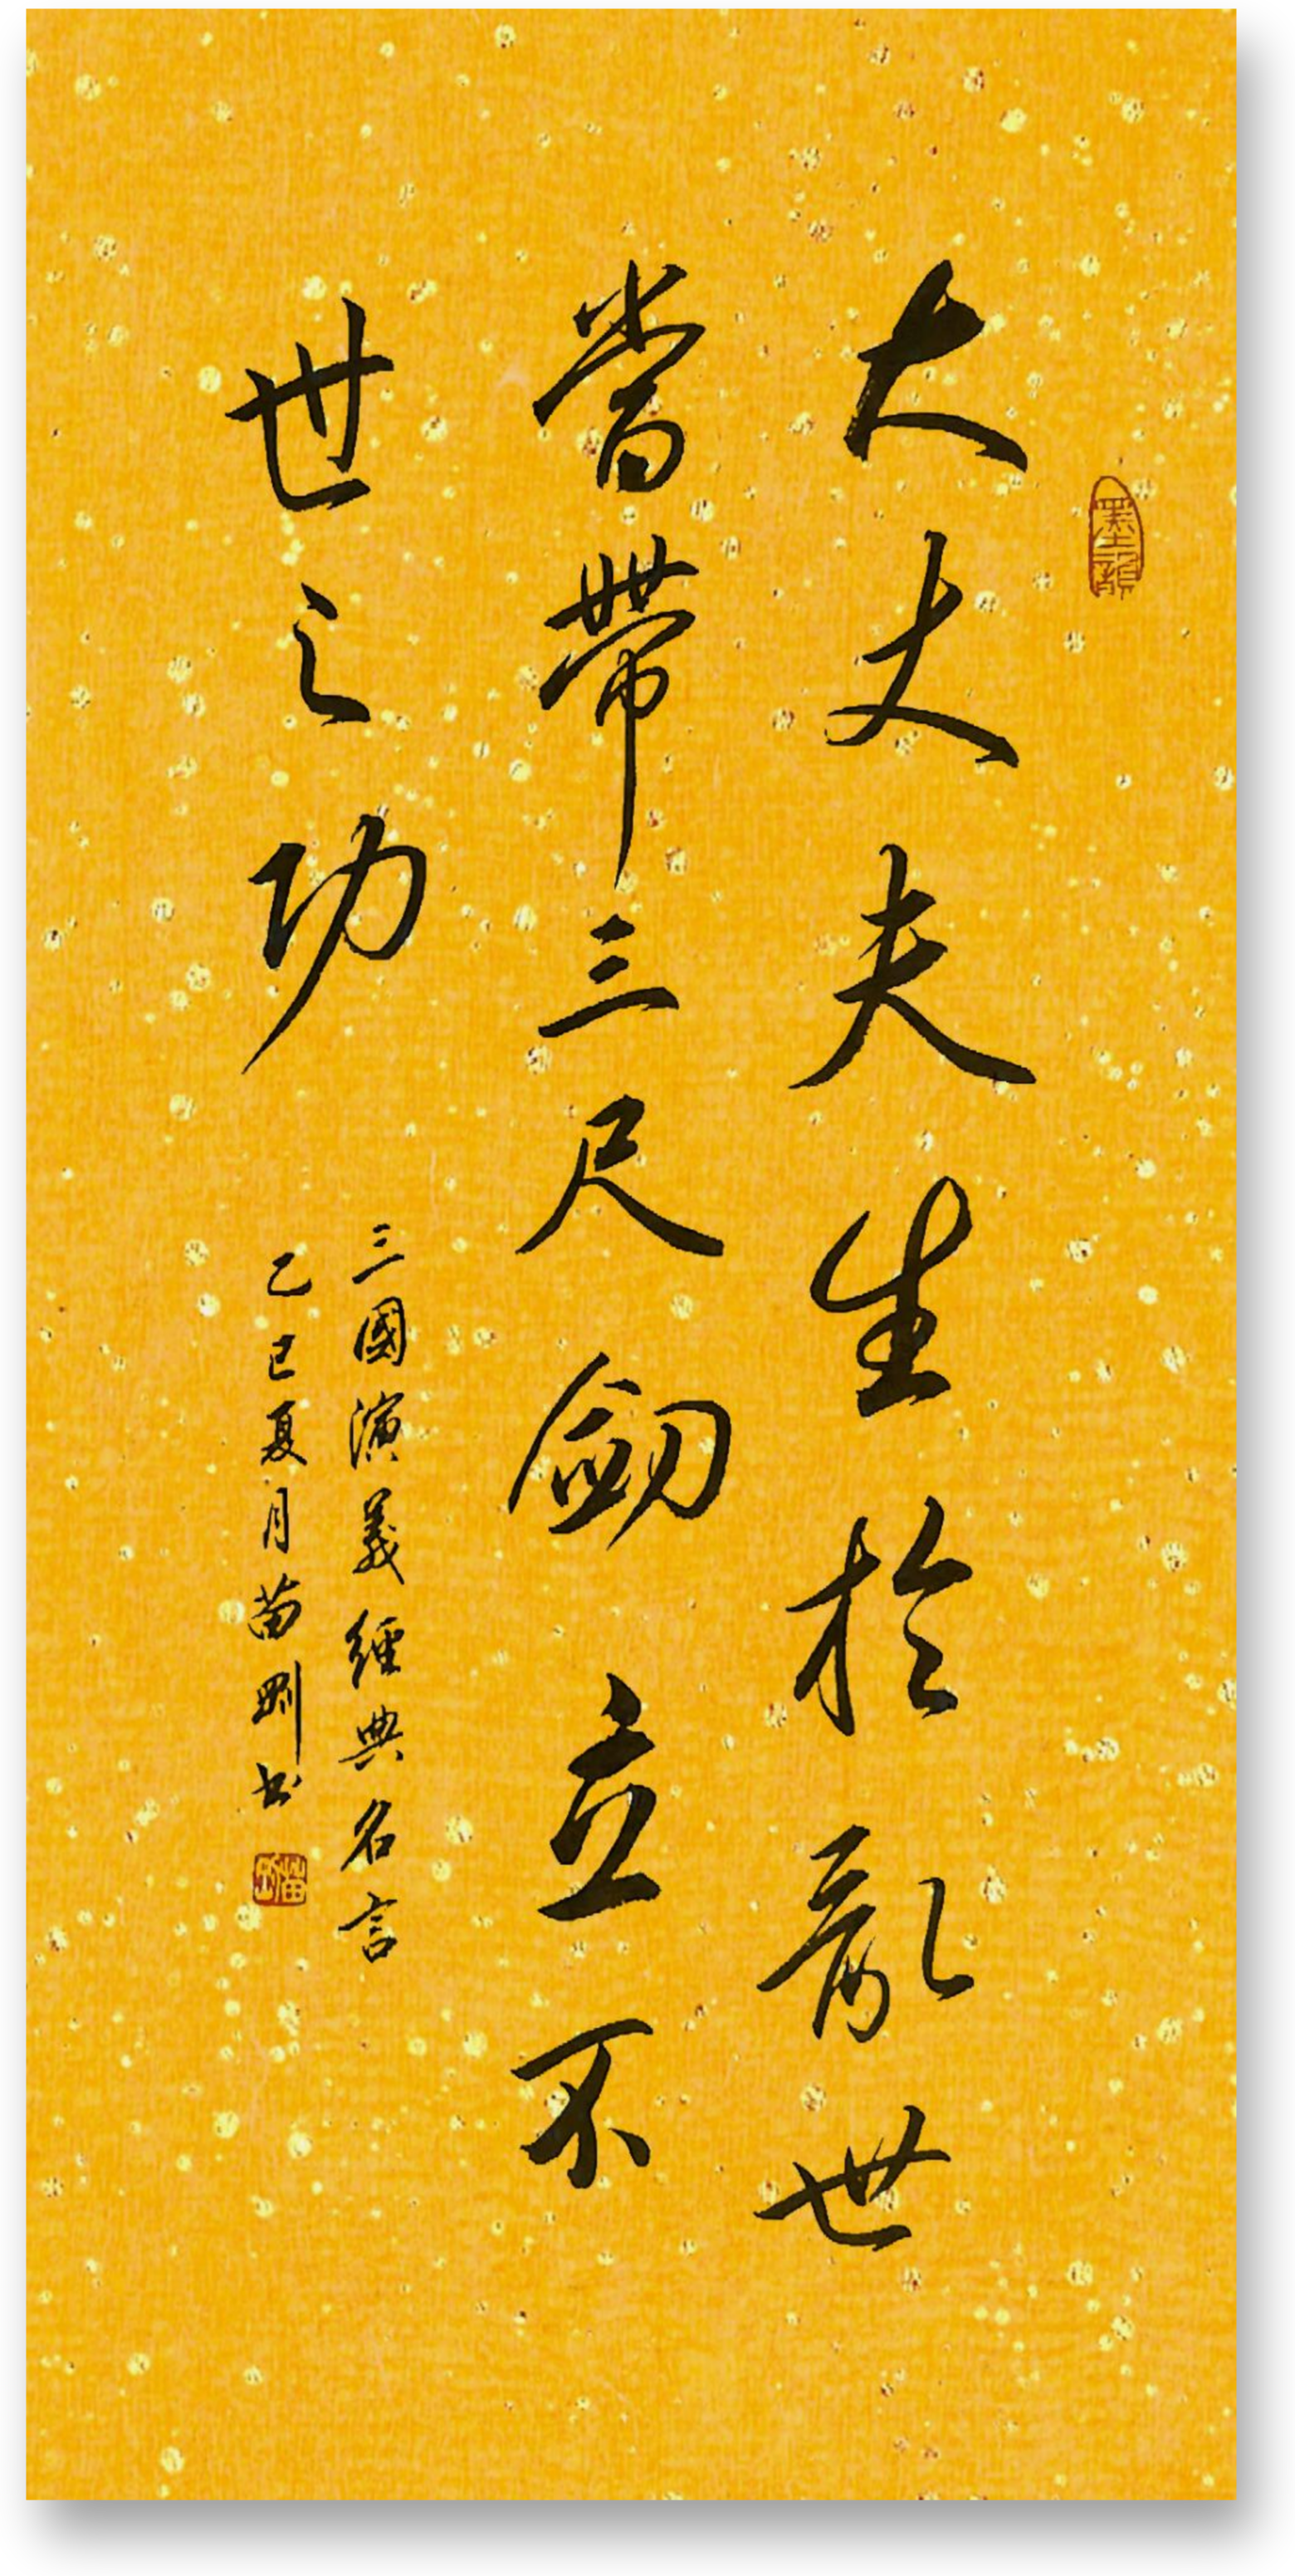 大丈夫生於亂世
當帶三尺劒立不
世之功
三國演義經典名言
乙巳夏月苗剛书
墨韻
苗剛